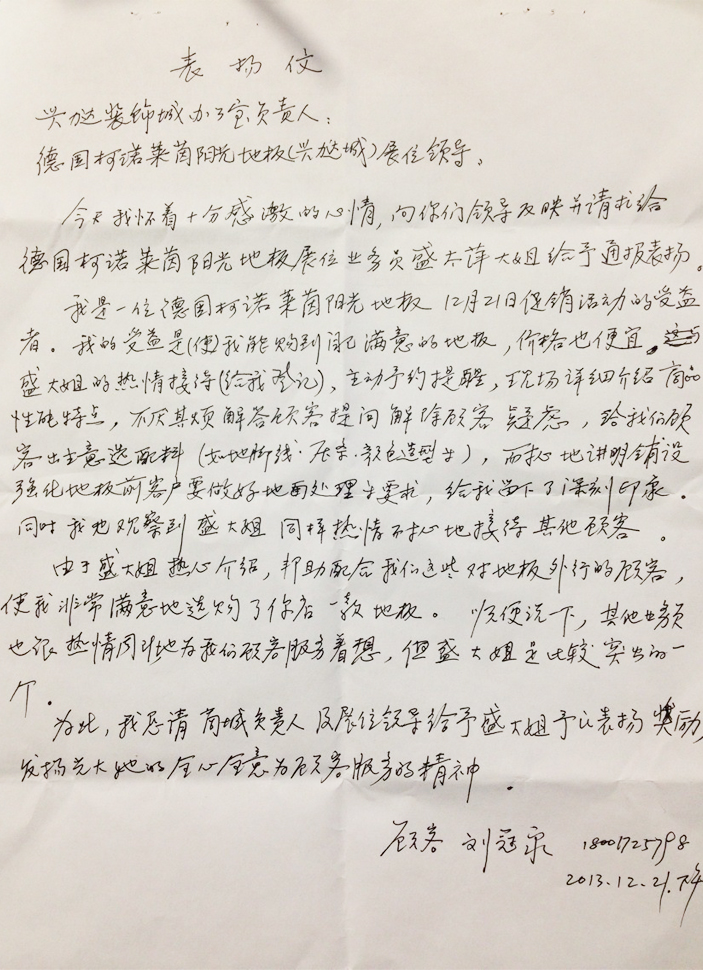 表扬仪
兴达装饰城办公室负责人：
德国柯诺莱茵阳光地板(兴达城)展位领导、
今天我怀着十分感激的心情,向你们领导反映并请求给
德国柯诺莱茵阳光地板展位业务员盛太萍大姐给予通报表扬。
我是一位德国柯诺莱茵阳光地板12月21日促销活动的受益
者。我的受益是(使)我能购到自己满意的地板，价格也便宜。
盛大姐的热情接待(给我登记)，主动予约提醒，现场详细介绍商品
性能特点，不厌其烦解答顾客提问解除顾客疑虑，给我们顾
客出主意选配料（如地脚线·压条·颜色造型等），耐心地讲明铺设
强化地板前客户要做好地面处理等要求，给我留下了深刻印象。
同时我也观察到盛大姐同样热情耐心地接待其他顾客。
由于盛大姐热心介绍，帮助配合我们这些对地板外行的顾客，
使我非常满意地选购了你店一款地板。顺便说下，其他业务员
也很热情周到地为我们顾客服务着想，但盛大姐是比较突出的一
个.
为此，我恳请商城负责人及展位领导给予盛大姐予以表扬奖励，
发扬光大她的全心全意为顾客服务的精神.
顾客 刘冠 18001725798
2013.12.21.